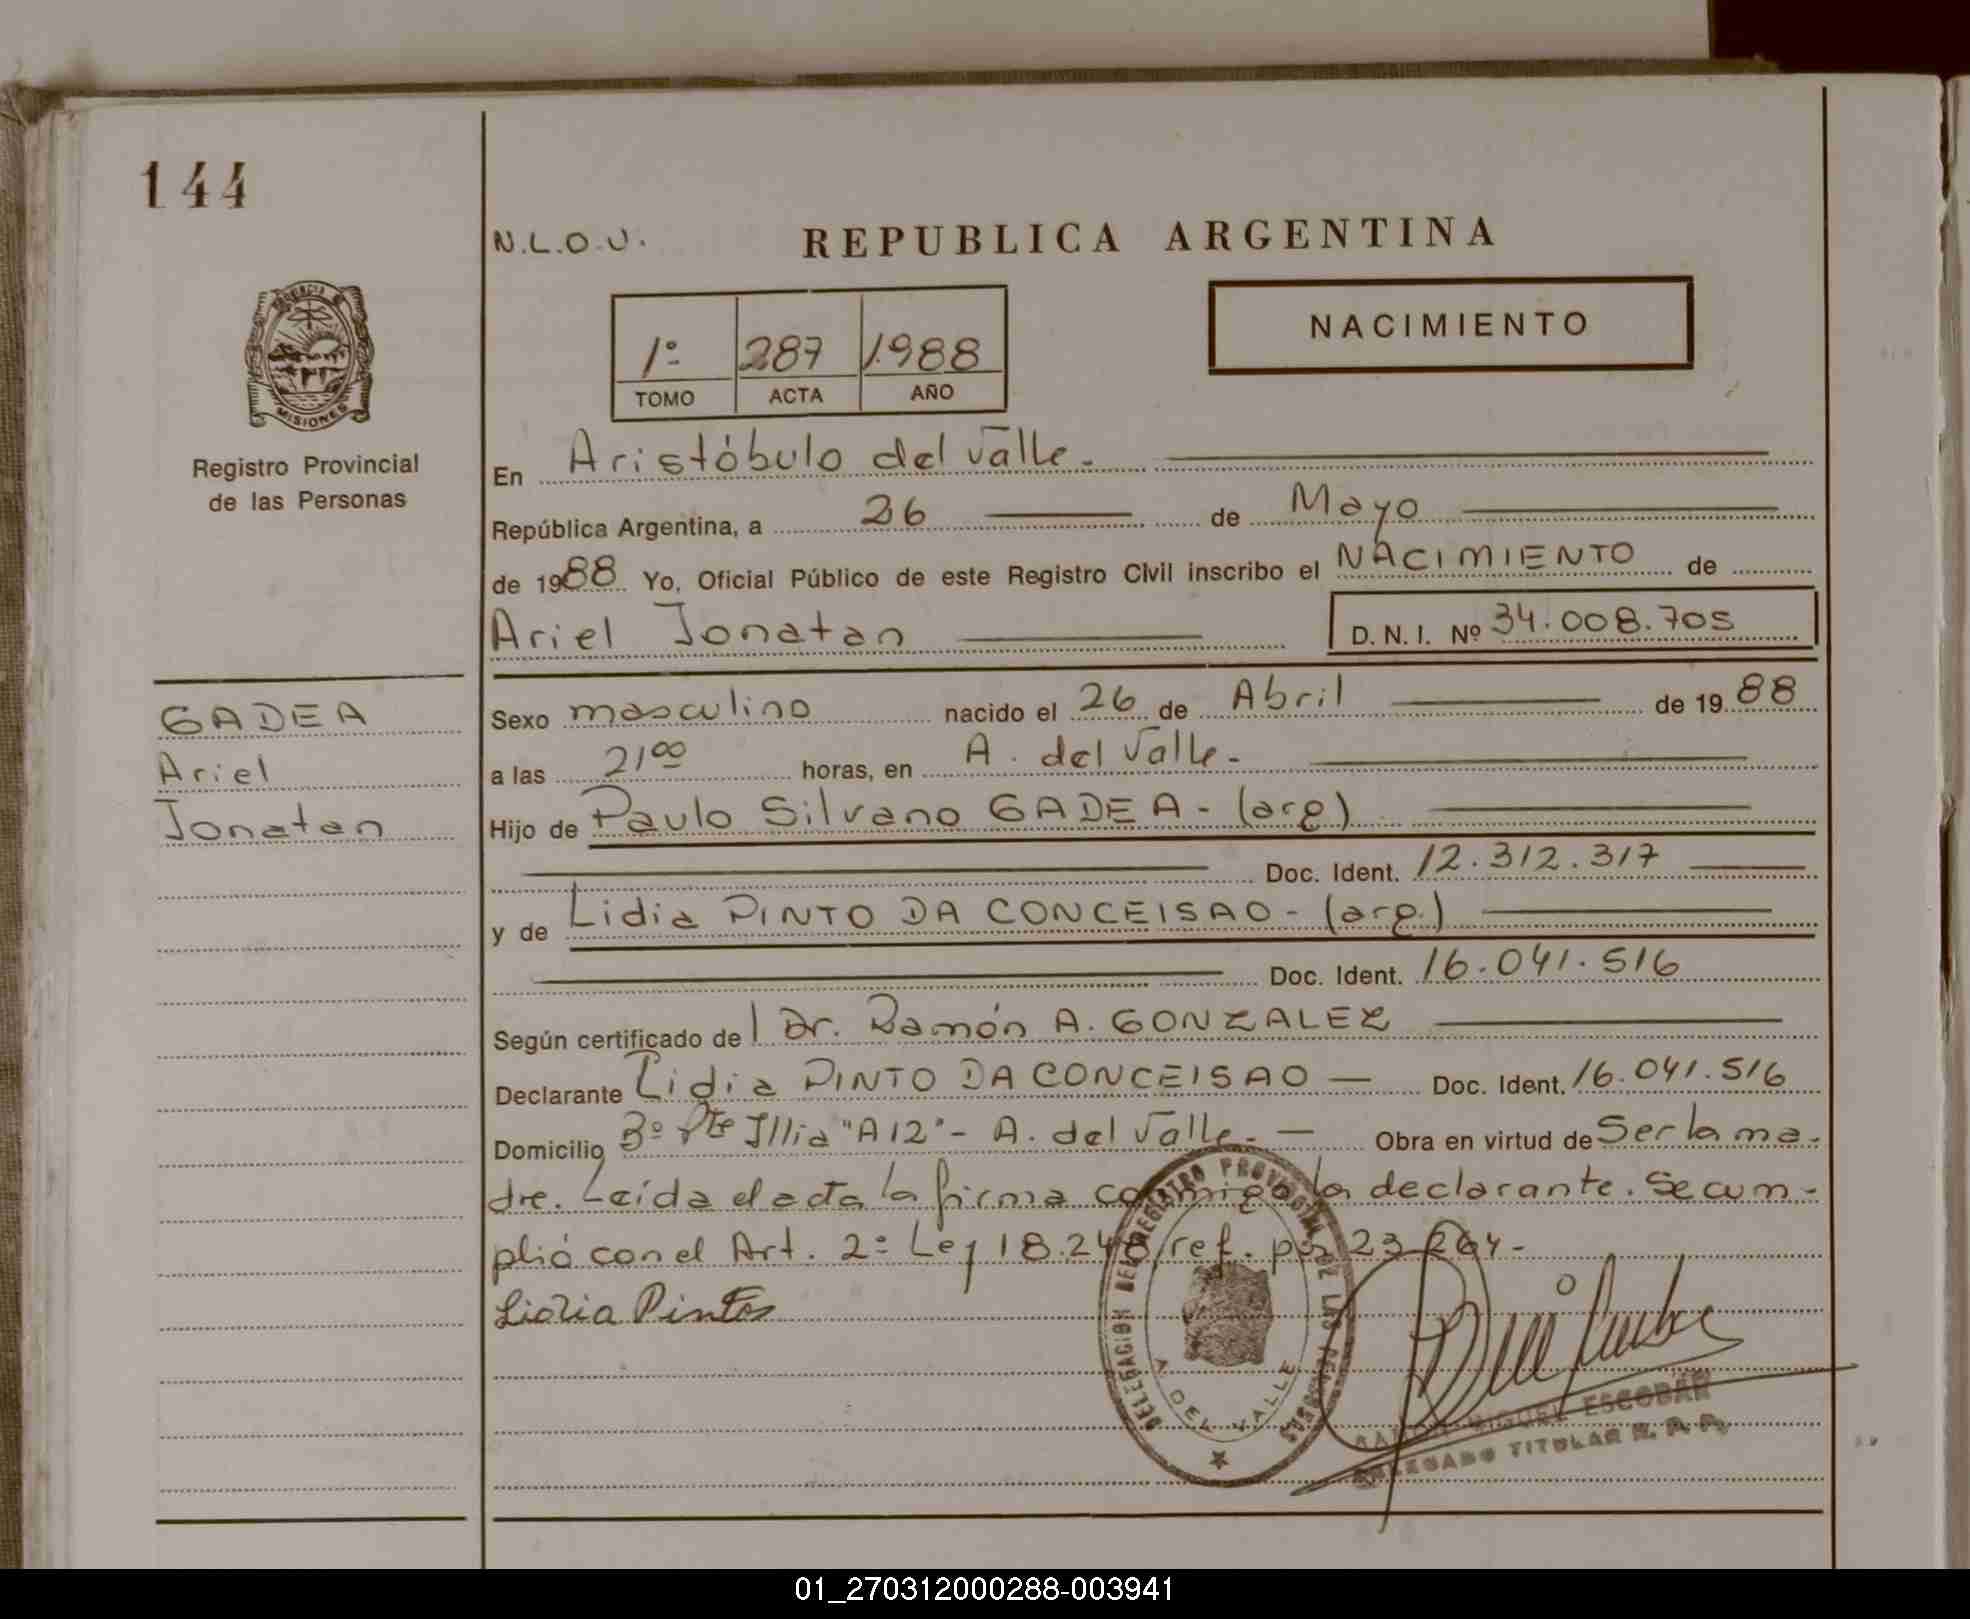 144
N.L.O.U.
REPUBLICA ARGENTINA
PROVINCIA DE
MISIONES
Registro Provincial
de las Personas
1º 287 1988
TOMO ACTA AÑO
NACIMIENTO
En Aristóbulo del Valle.
República Argentina, a 26 de Mayo
de 1988 Yo, Oficial Público de este Registro Civil inscribo el NACIMIENTO de
Ariel Jonatan D.N.I. Nº 34.008.705
GADEA
Ariel
Jonatan
Sexo masculino nacido el 26 de Abril de 1988
a las 21 00 horas, en A. del Valle.-
Hijo de Paulo Silvano GADEA - (arg)
Doc. Ident. 12.312.317
y de Lidia PINTO DA CONCEISAO - (arg.)
Doc. Ident. 16.041.516
Según certificado del Dr. Ramón A. GONZALEZ
Declarante Lidia PINTO DA CONCEISAO — Doc. Ident. 16.041.516
Domicilio Bº Pte Illia "A12" - A. del Valle. — Obra en virtud de Ser la ma-
dre. Leída el acta la firma conmigo la declarante. Se cum-
plió con el Art. 2º Ley 18.248 ref. por 23.264-
Lidia Pinto
DELEGACION DEL REGISTRO PROVINCIAL DE LAS PERSONAS
A. DEL VALLE
RAMON MIGUEL ESCOBAR
DELEGADO TITULAR R. P. P.
01_270312000288-003941